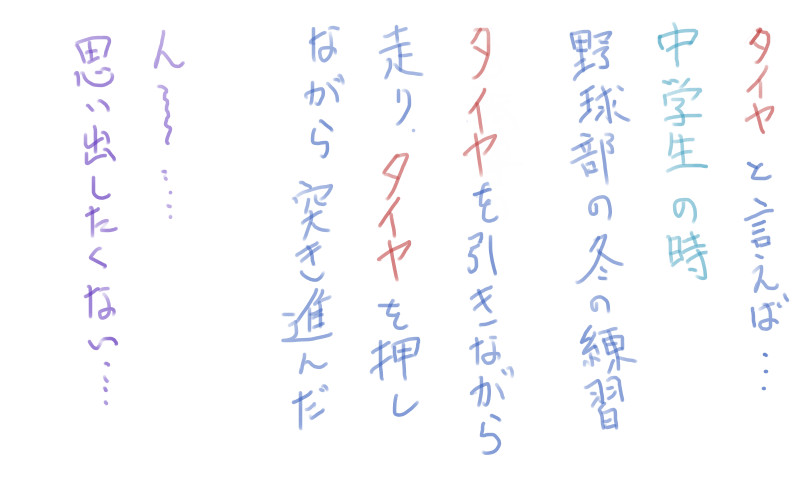 タイヤと言えば…
中学生の時
野球部の冬の練習
タイヤを引きながら
走り.タイヤを押し
ながら突き進んだ
ん〜〜……
思い出したくない……